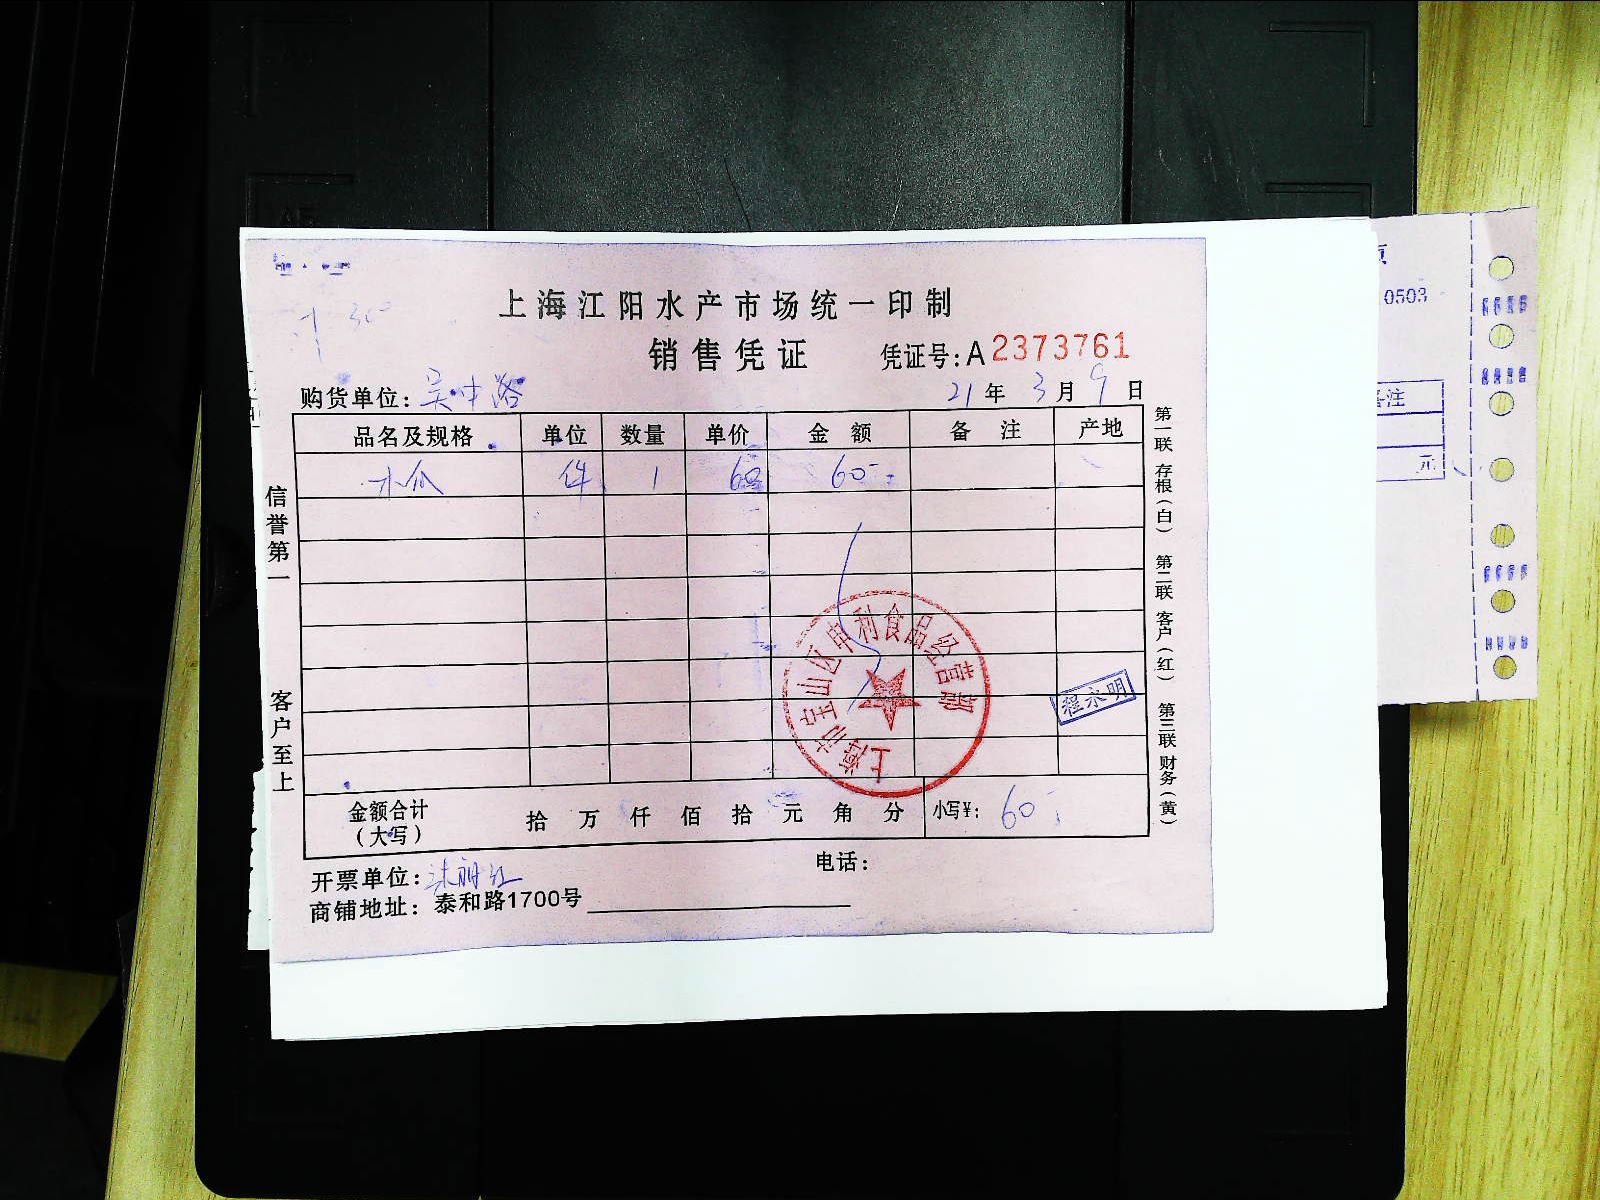 上海江阳水产市场统一印制
销售凭证
凭证号:A2373761
购货单位:吴中路
21年3月9日
品名及规格 单位 数量 单价 金额 备注 产地
件 1 60 60-
金额合计(大写) 拾 万 仟 佰 拾 元 角 分 小写¥: 60-
开票单位:
电话:
商铺地址: 泰和路1700号
信誉第一
客户至上
第一联 存根(白) 第二联 客户(红) 第三联 财务(黄)
上海市宝山区申利食品经营部
程永明
0503
备注
元